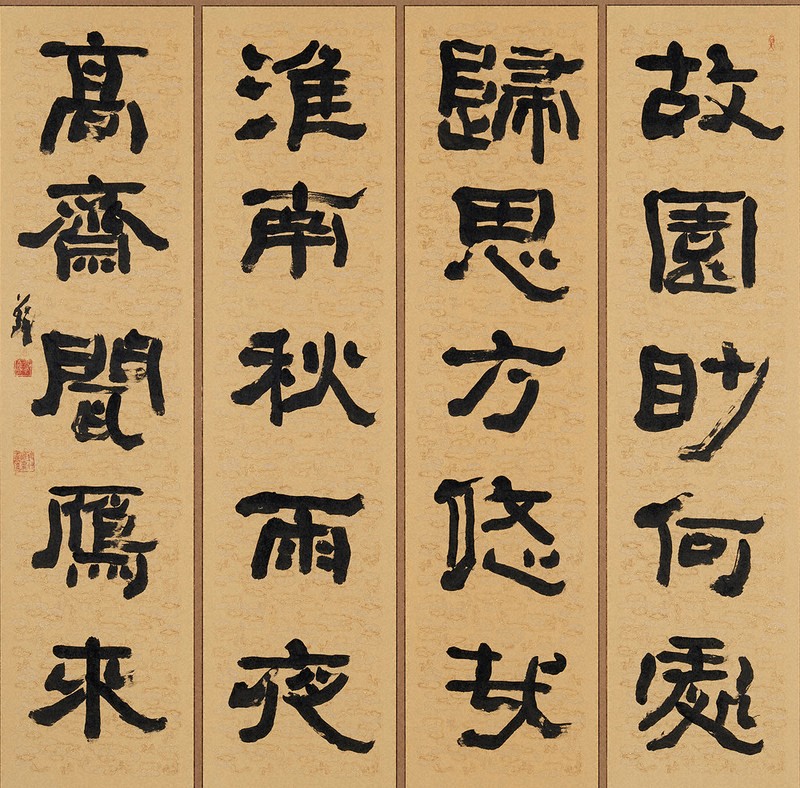 故園眇何處
歸思方悠哉
淮南秋雨夜
高齋聞鴈來